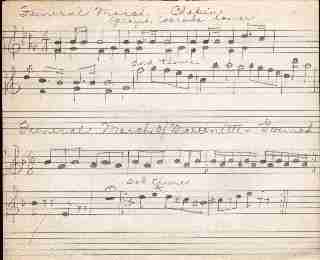 Funeral March. Chopin
2nd theme
Funeral March of Marionette - Gounod
2nd theme